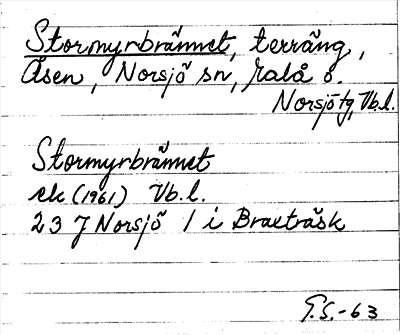 Stormyrbrännet, terräng,
Åsen, Norsjö sn, Malå o.
Norsjö tg, Vb.l.
Stormyrbrännet
ek (1961) Vb.l.
23 J Norsjö 1 i Braxträsk
G.S.-63